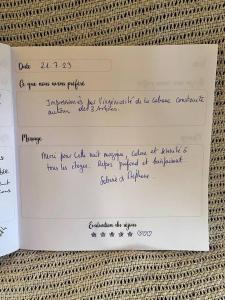 Date 21.7.23
Ce que nous avons préféré
Impressionnés par l'ingéniosité de la cabane construite
autour des 3 Arbres.
Message
Merci pour cette nuit magique, calme et sérénité à
tous les étages. Repos profond et bienfaisant.
Evaluation du séjour